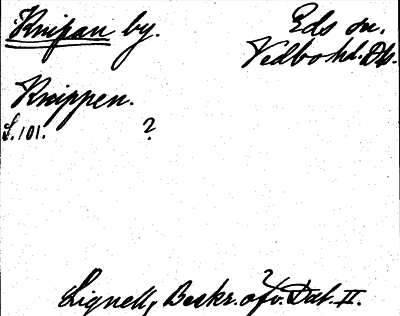 Knipan by. Eds sn.
Vedbo hd. Dls.
Knippen.
S. 101. ?
Lignell, Beskr. öfv. Dal. II.